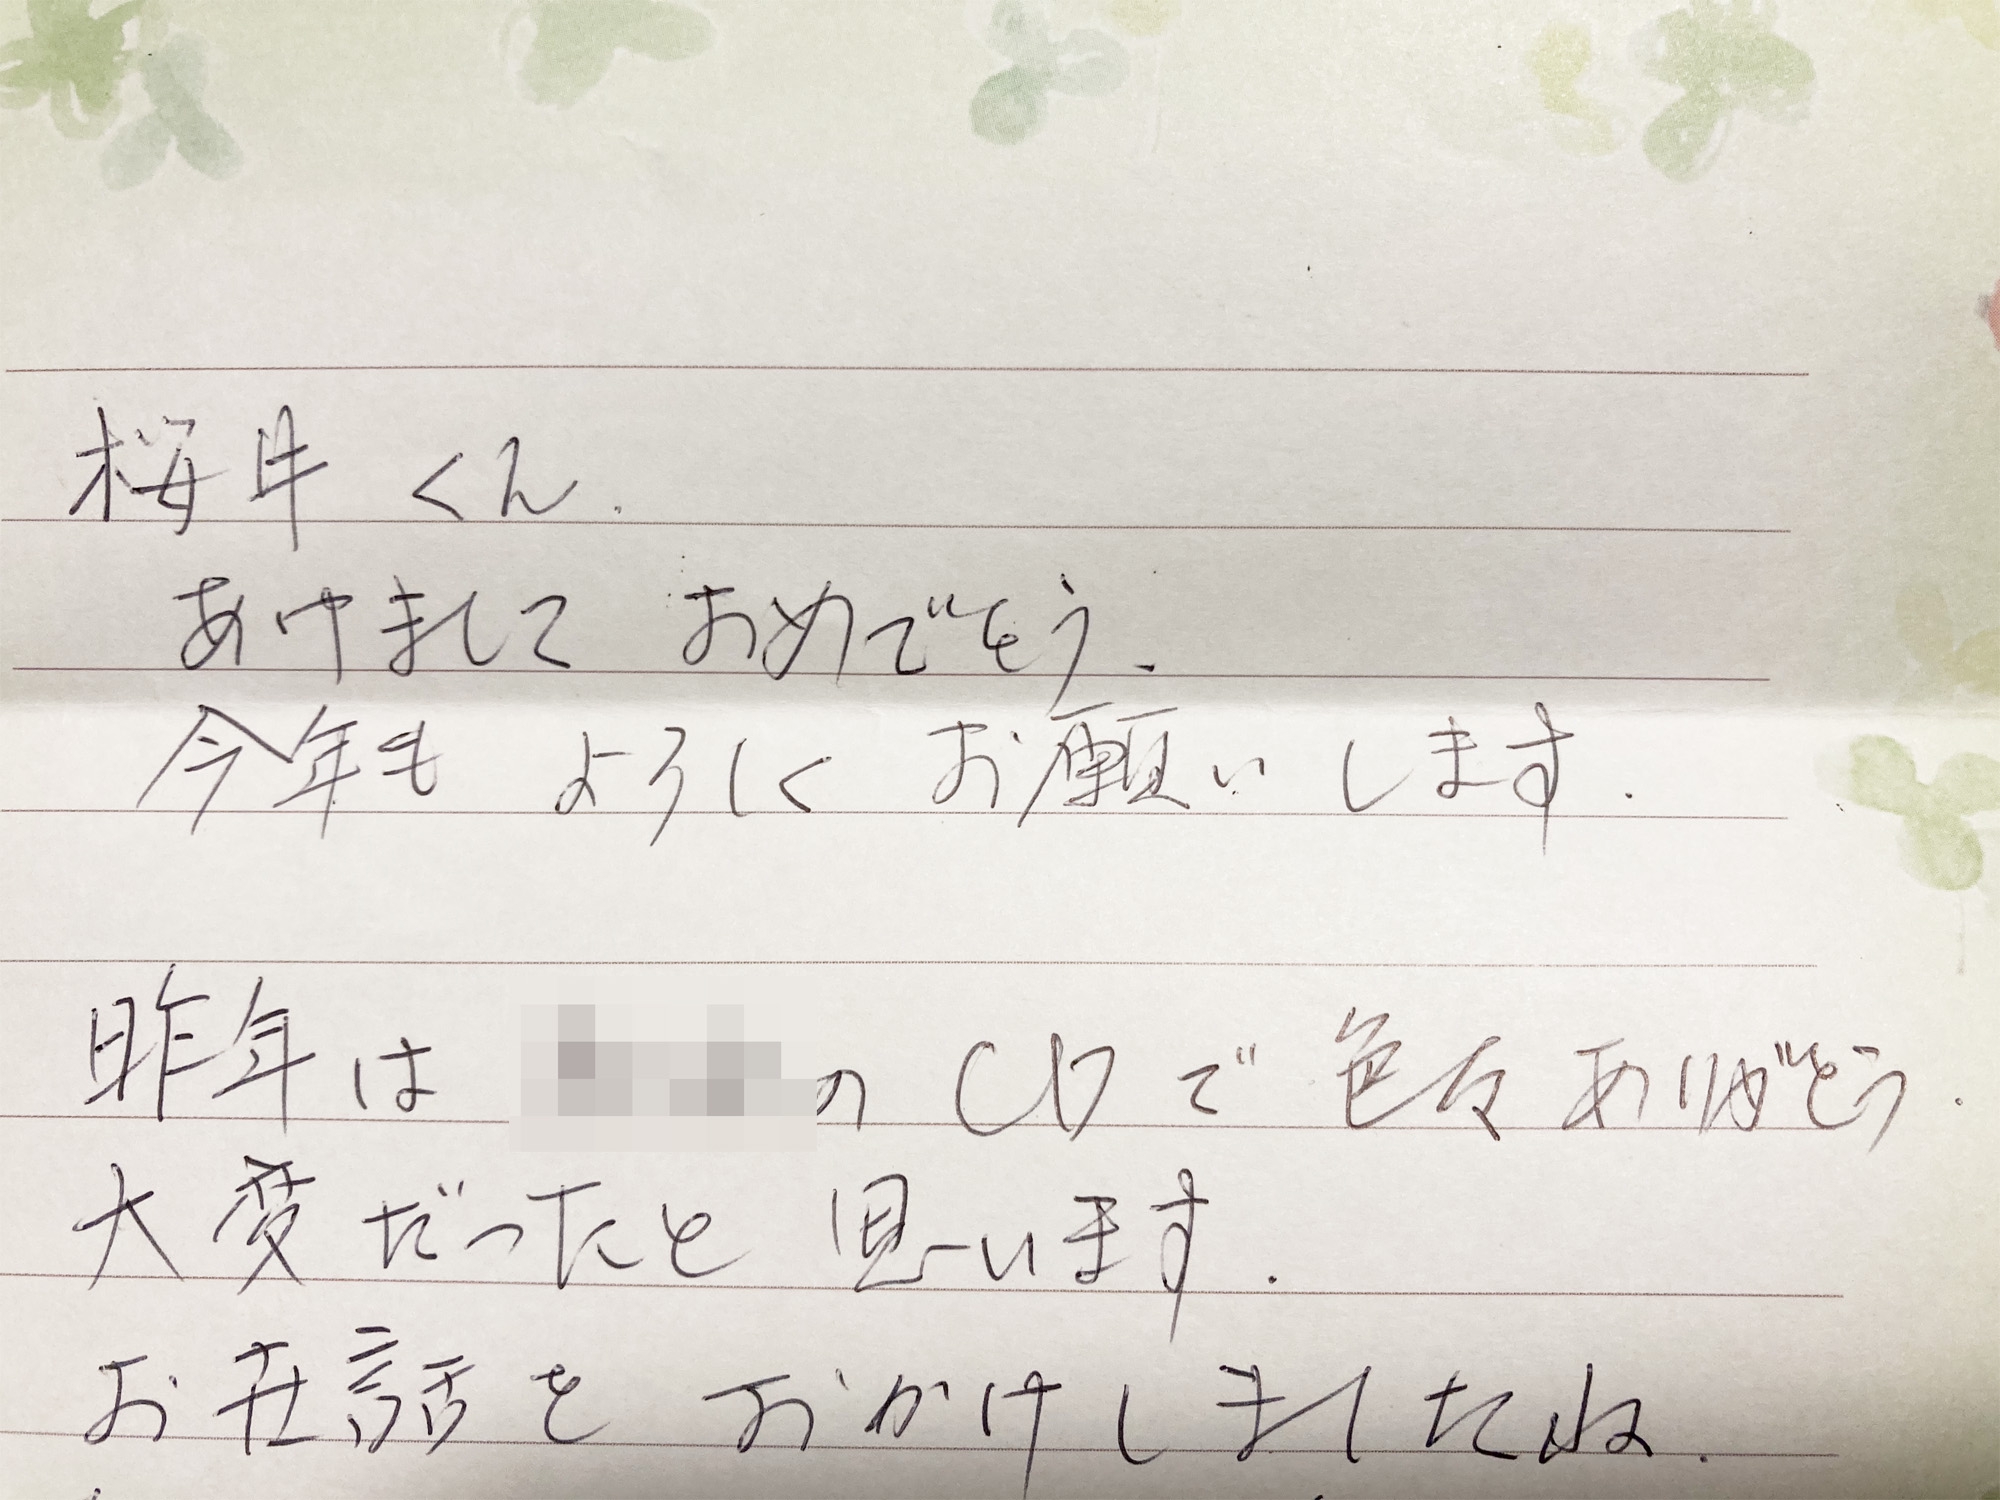 桜井くん.
あけまして おめでとう.
今年も よろしく お願いします.
昨年は の CDで 色々ありがとう.
大変だったと 思います.
お世話を おかけしましたね.